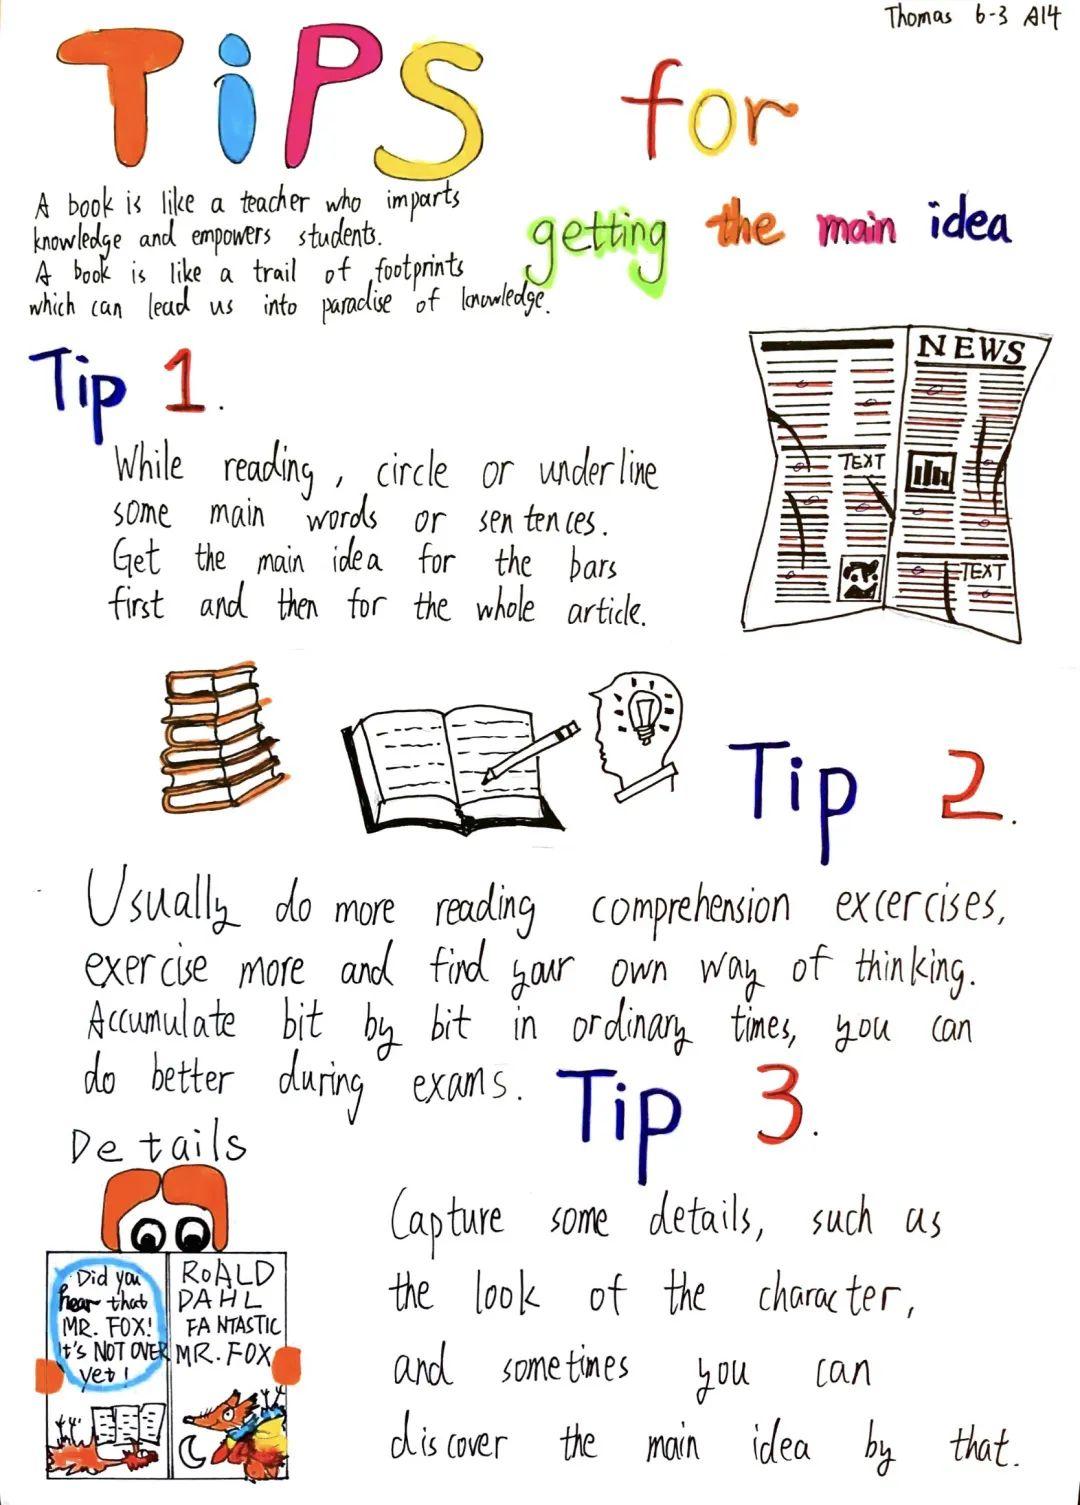 Thomas 6-3 A14
TiPS for
getting the main idea
A book is like a teacher who imparts
knowledge and empowers students.
A book is like a trail of footprints
which can lead us into paradise of knowledge.
Tip 1.
While reading, circle or underline
some main words or sentences.
Get the main idea for the bars
first and then for the whole article.
NEWS
TEXT
TEXT
Tip 2.
Usually do more reading comprehension excercises,
exercise more and find your own way of thinking.
Accumulate bit by bit in ordinary times, you can
do better during exams.
Tip 3.
Details
Capture some details, such as
the look of the character,
and sometimes you can
discover the main idea by that.
Did you
hear that
MR. FOX!
It's NOT OVER
yet!
ROALD
DAHL
FANTASTIC
MR. FOX